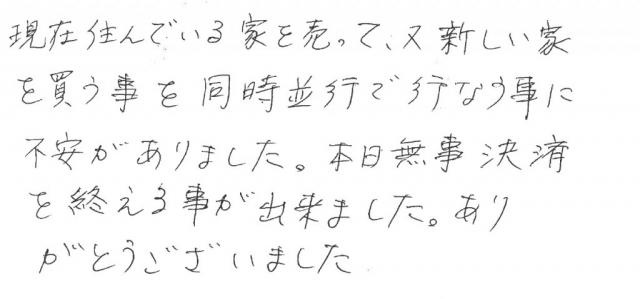 現在住んでいる家を売って、又新しい家
を買う事を同時並行で行なう事に
不安がありました。本日無事決済
を終える事が出来ました。あり
がとうございました